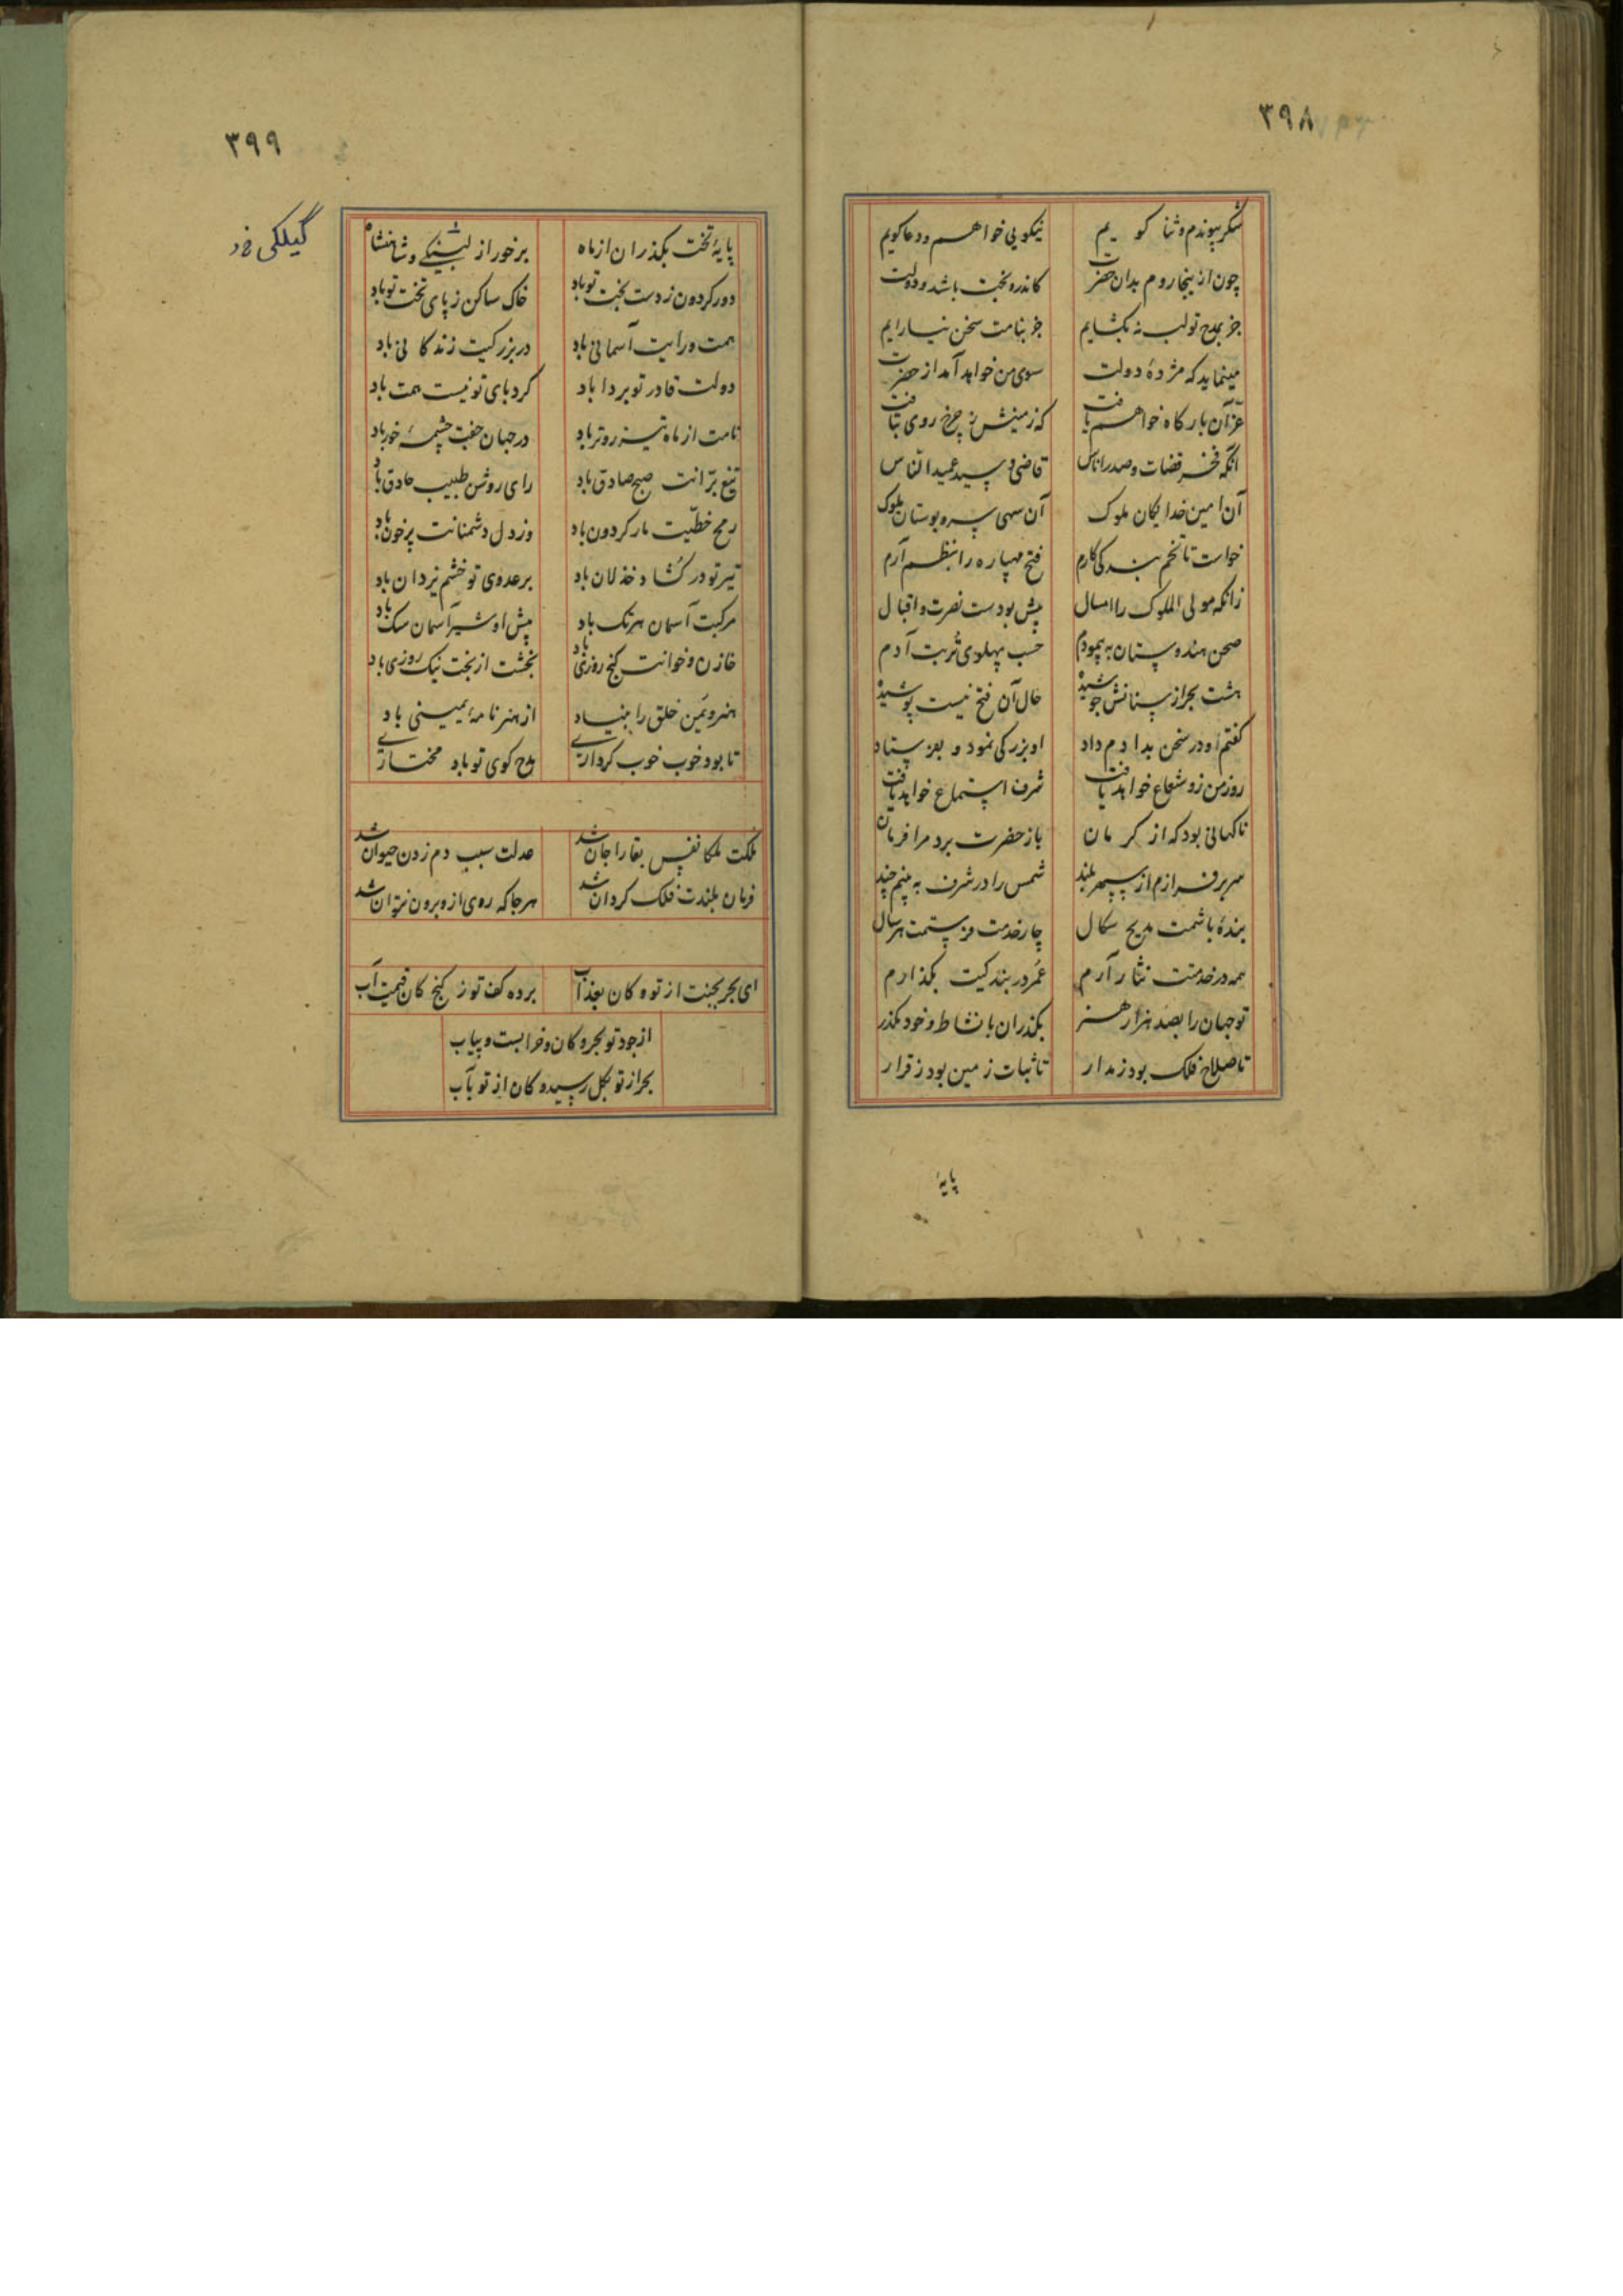 ۳۹۸
شکر پیوندم و ثنا کو یم نیکویی خواهم و دعا کویم
چون از ینجا روم بدان حضرت کاندرو بخت باشد و دولت
جز بمدح تو لب نه بکشایم جز بنامت سخن نیارایم
مینماید که مژدهٔ دولت سوی من خواهد آمد از حضرت
عزّ آن بارکاه خواهم یافت که زمینش ز چرخ روی بتافت
آنکه فخر قضات و صدر اناس قاضی و سید عمید النّاس
آن امین خدایکان ملوک آن سهی سرو بوستان ملوک
خواست تا تخم بندکی کارم فتح مهپاره را بنظم آرم
زانکه مولی الملوک را امسال پیش بودست نصرت و اقبال
صحن هندوستان به پیمودم حسب پهلوی تربت آدم
هشت بحر از سنانش جوشیده حال آن فتح نیست پوشیده
کفتم او در سخن بدادم داد او بزرکی نمود و بفرستاد
روز من زو شعاع خواهد یافت شرف استماع خواهد یافت
ناکهانی بود که از کرمان باز حضرت برد مرا فرمان
سر برفرازم از سپهر بلند شمس را در شرف به بینم چند
بندهٔ باشمت مدیح سکال چار خدمت فرستمت هر سال
همه در خدمتت نثار آرم عُمر در بندکیت بکذارم
تو جهان را بصد هزار هنر بکذران با نشاط و خود مکذر
تا صلاح فلک بود ز مدار تا ثبات زمین بود ز قرار
پایهٔ
۳۹۹
گیلکی
پایهٔ تخت بکذران از ماه برخور از لشکی و شاهنشاه
دور کردون ز دست بخت تو باد خاک ساکن ز پای تخت تو باد
همت و رایت آسمانی باد در بزرکیت زندکانی باد
دولت قادر تو بردا باد کرد پای تو نیست همت باد
نامت از ماه تیزروتر باد در جهان جفت چشمهٔ خور باد
تیغ برّانت صبح صادق باد رای روشن طبیب حاذق باد
رمح خطّیت مار کردون باد وز دل دشمنانت پرخون باد
تیر تو در کشاد خذلان باد بر عدوی تو خشم یزدان باد
مرکبت آسمان هرتک باد پیش او شیر آسمان سک باد
خازن و خوانت کنج روزی باد بخشت از بخت نیک روزی باد
هنر و یمن خلق را بنیاد از هنر نامهٔ یمینی باد
تا بود خوب خوب کرداری مدح کوی تو باد مختاری
ملکت ملکا نفس بقا را جان شد عدلت سبب دم زدن حیوان شد
فرمان بلندت فلک کردان شد هر جا که روی ازو برون نتوان شد
ای بحر بجنت از تو و کان بعذاب برده کف تو ز کنج کان قیمت آب
از جود تو بحر و کان و خرابست و بیاب
بحر از تو بکل رسیده کان از تو بآب